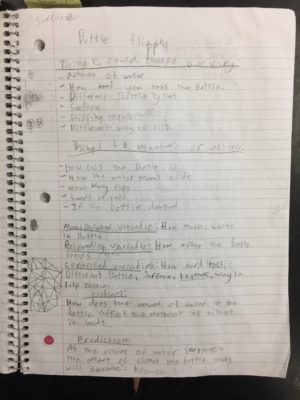 surface
Bottle flipping
Things I could change or vary
- amount of water
- How hard you toss the Bottle.
- Different bottle types
- Surface
- flipping
- Different way to flip
Things to measure or observe
- How full the Bottle is
- How the water moves inside
- How many flips
- If the bottle
Manipulated variable: How much water
in Bottle.
Responding variable: How often the bottle
lands
Controlled variables: How hard toss,
Different Bottle, Surface, way to
flip Bottle.
Problem:
How does the amount of water in the
bottle affect the outcome of times
it lands.
Prediction:
As the amount of water
the amount of times the bottle lands
will because